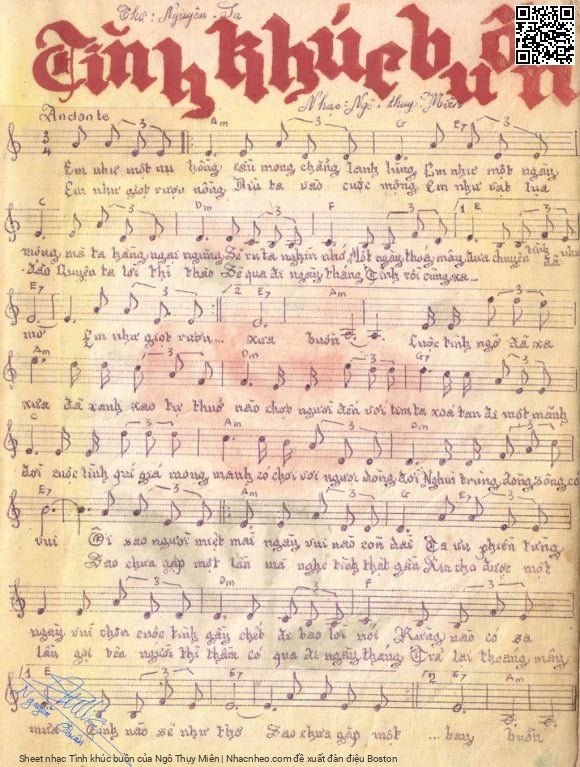 Thơ : Nguyên . Sa
Tình khúc buồn
Nhạc : Ngô . thuy . Miên
Andante
3 Am 3 G E7 3
Em như một nụ hồng cầu mong chẳng lạnh lùng Em như một ngày
Em như giọt rượu nồng đưa ta vào cuộc mộng Em như vạt lụa
C 3 Dm 3 F 3 1 E
mộng mà ta hằng ngại ngùng Sẽ ru ta nghìn nhớ Một ngày thoáng mây đưa chuyện tình đã như
đào Quyện ta lời thì thào Sẽ qua đi ngày tháng Tình rồi cũng xa...
E7 3 2 E7 Am
mơ Em như giọt rượu... xưa buồn Cuộc tình ngỡ đã xa
Am 3 Dm G7
xưa đã xanh xao tự thuở nào chợt người đến với tim ta xóa tan đi một mảnh
C 3 Am Dm
đời cuộc tình quí giá mong manh có chơi vơi người đừng dối Nghìn trùng dòng sông có
E7 3 Am 3 G E7 3
vui Ôi sao người miệt mài ngày vui nào còn dài Ta ưu phiền từng
Sao chưa gặp một lần mà nghe tình thật gần Xin cho được một
3 Dm 3 F 3
ngày vui chôn cuộc tình gầy chết đi bao lời nói Rừng nào có sa
lần gọi tên người thì thầm có qua đi ngày tháng Trả lại thoáng mây
1 E Am 3 2 E7 Am
mưa Tình nào sẽ như thơ Sao chưa gặp một ... bay buồn
Sheet nhạc Tình khúc buồn của Ngô Thụy Miên | Nhacnheo.com đề xuất đàn điệu Boston